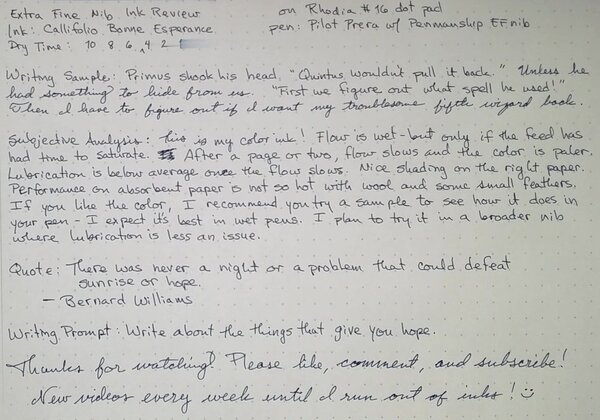 Extra Fine Nib Ink Review on Rhodia #16 dot pad
Ink: Callifolio Bonne Esperance pen: Pilot Prera w/ Penmanship EF nib
Dry Time: 10 8 6 4 2 1
Writing Sample: Primus shook his head. "Quintus wouldn't pull it back." Unless he
had something to hide from us. "First we figure out what spell he used!"
Then I have to figure out if I want my troublesome fifth wizard back.
Subjective Analysis: This is my color ink! Flow is wet-but only if the feed has
had time to saturate. After a page or two, flow slows and the color is paler.
Lubrication is below average once the flow slows. Nice shading on the right paper.
Performance on absorbent paper is not so hot with wool and some small feathers.
If you like the color, I recommend you try a sample to see how it does in
your pen - I expect it's best in wet pens. I plan to try it in a broader nib
where lubrication is less an issue.
Quote: There was never a night or a problem that could defeat
sunrise or hope.
- Bernard Williams
Writing Prompt: Write about the things that give you hope.
Thanks for watching! Please like, comment, and subscribe!
New videos every week until I run out of inks! :)